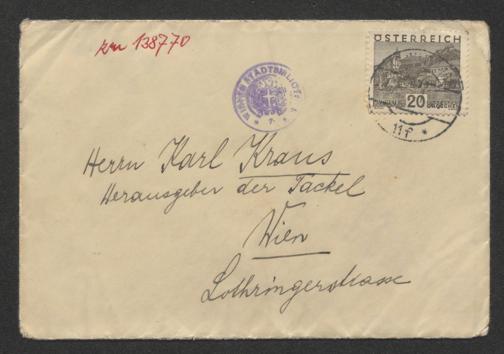 ÖSTERREICH
138770
WIENER STADTBIBLIOTHEK
20
11
Herrn Karl Kraus
Herausgeber der Fackel
Wien
Lothringerstrasse